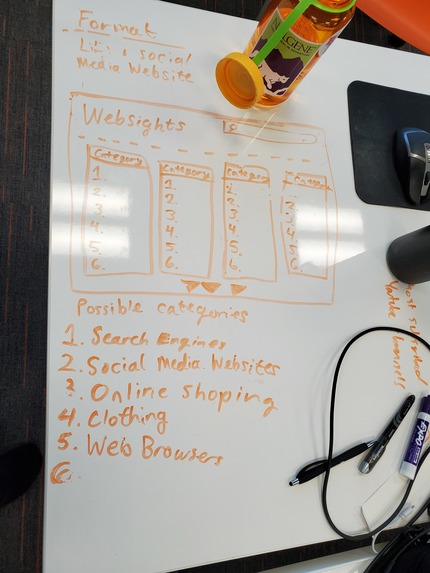 Format
Like a social
Media Website
Websights
Category
1.
2.
3.
4.
5.
6.
Category
1.
2.
3.
4.
5.
6.
Category
1.
2.
3.
4.
5.
6.
Category
2.
3.
4.
5.
6.
Possible categories
1. Search Engines
2. Social Media Websites
3. Online shoping
4. Clothing
5. Web Browsers
6.
most subscribed
Youtube channels
NALGENE